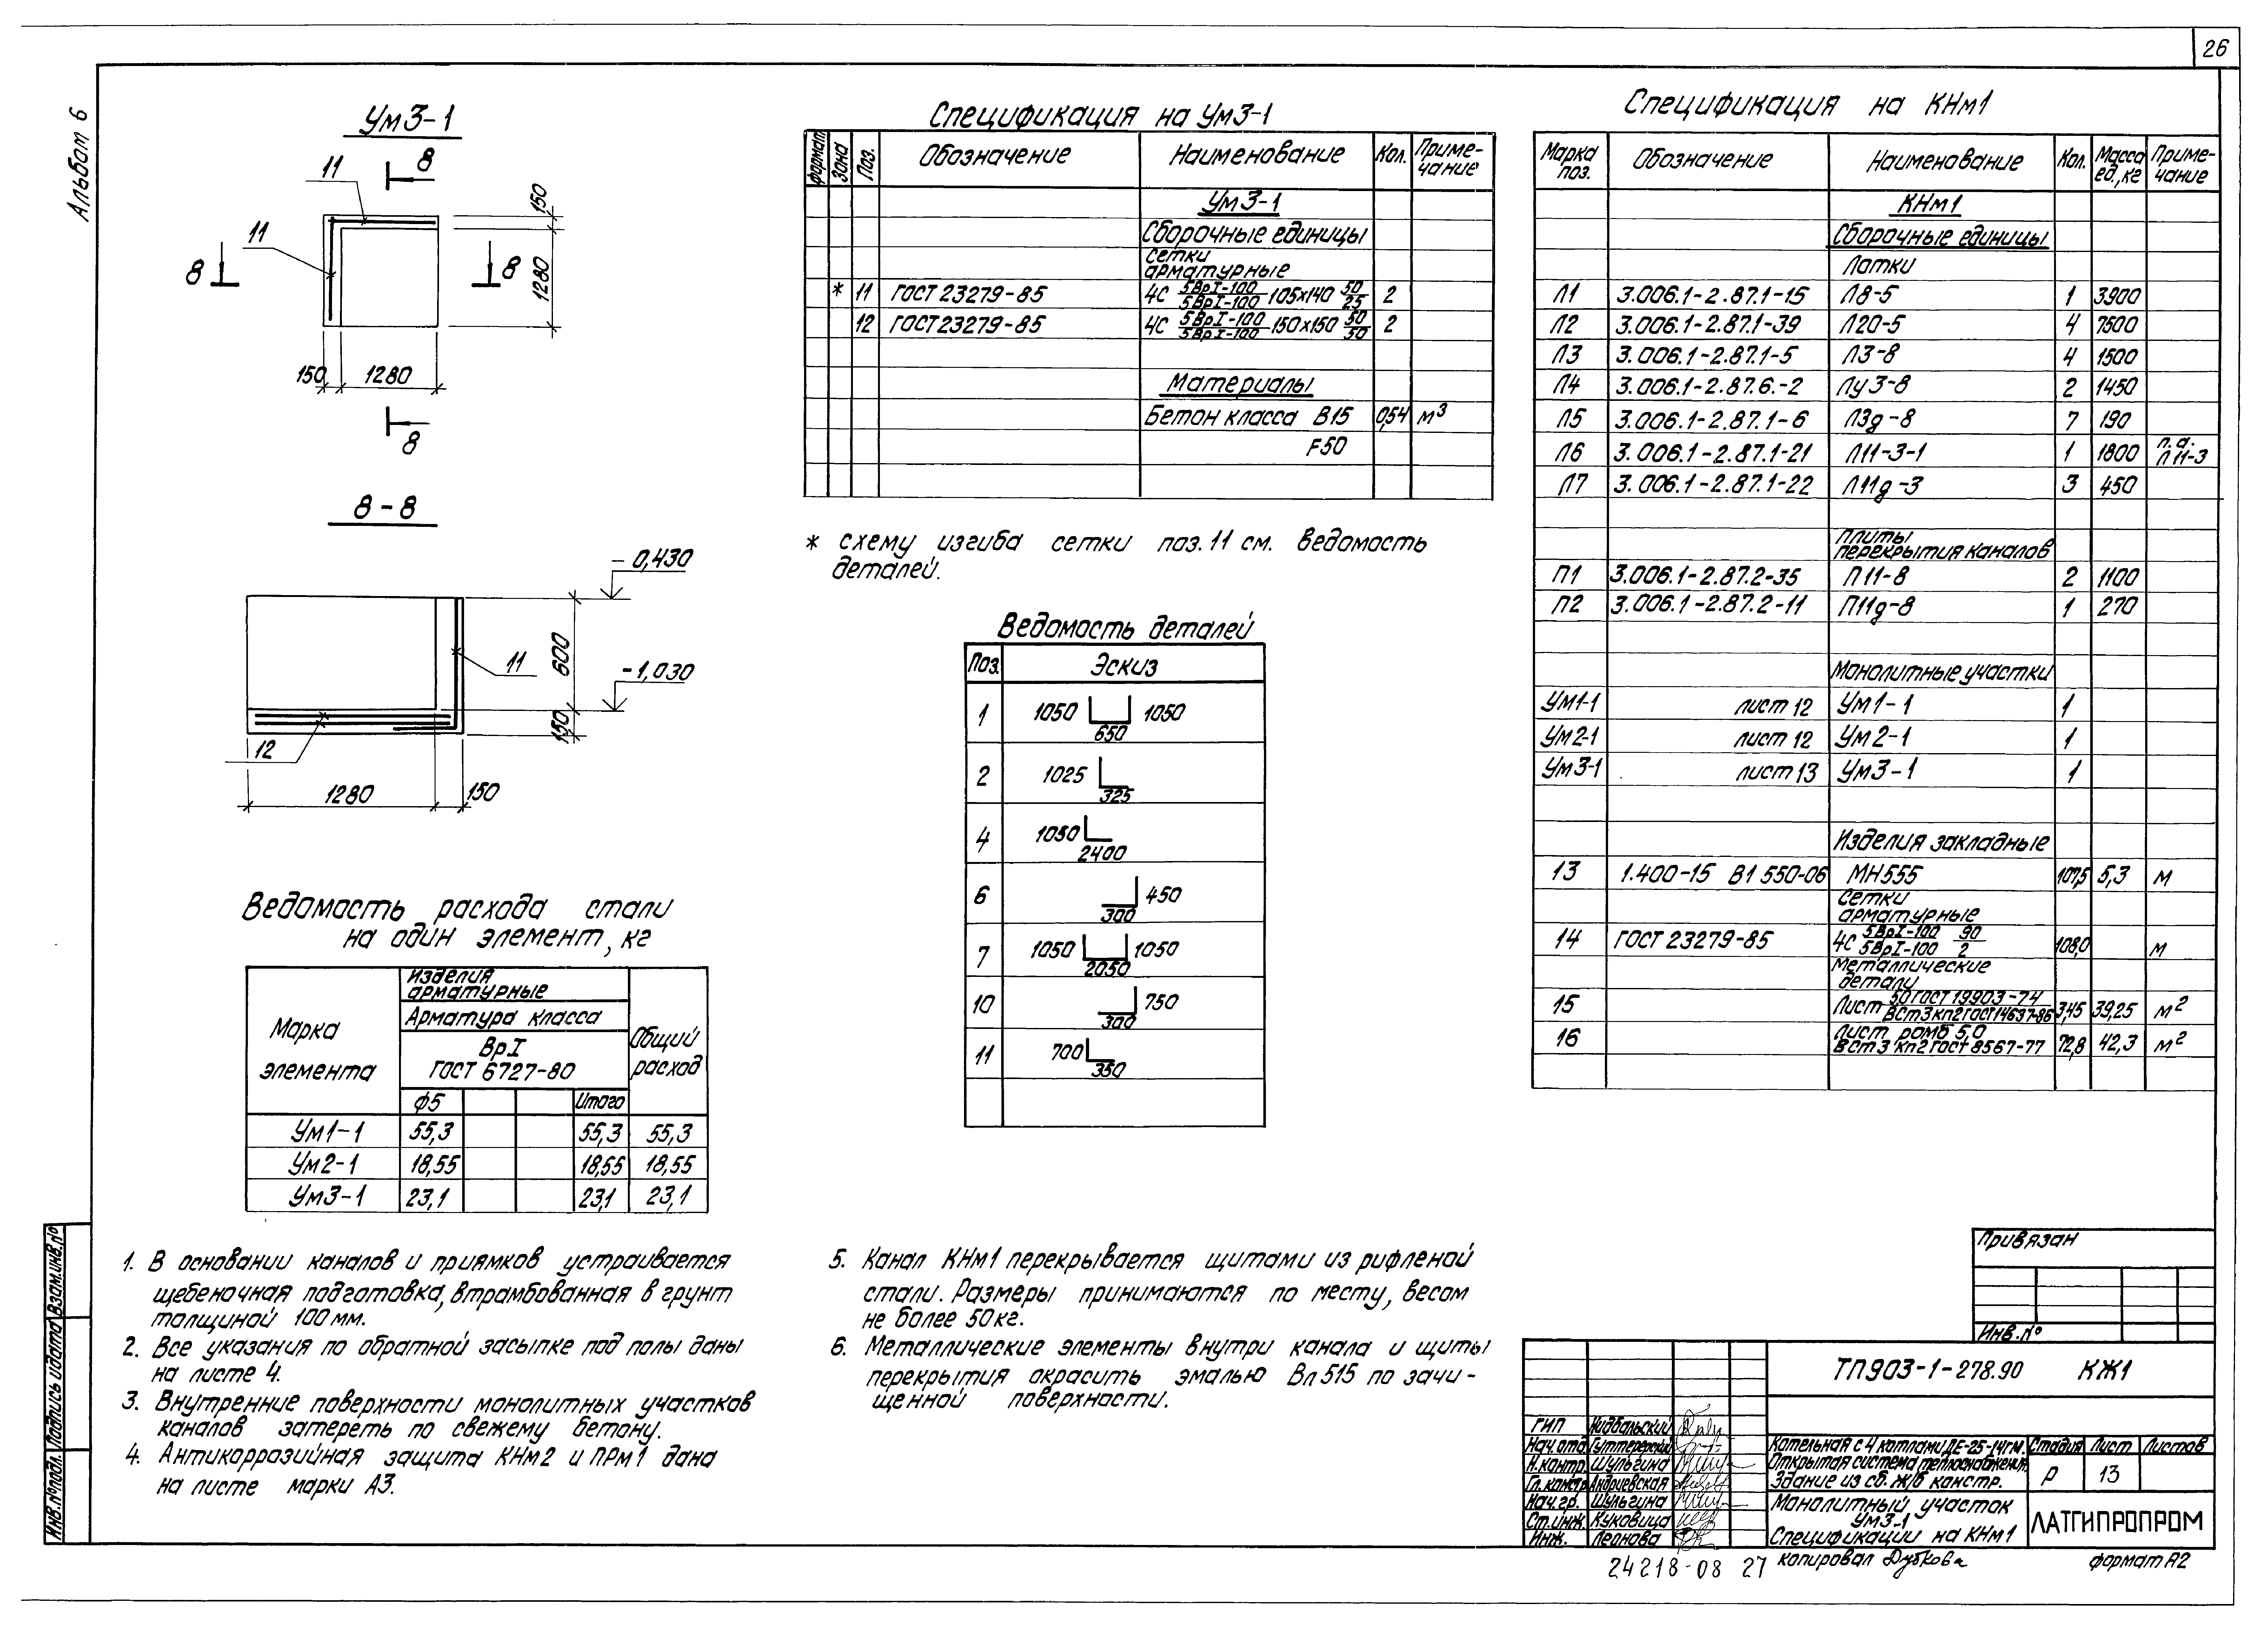 26
Альбом 6
Ум3-1
11
8
150
11
8
8
1280
150
1280
8
8-8
-0,430
600
11
-1,030
150
12
1280
150
Ведомость расхода стали
на один элемент, кг
Марка элемента
Изделия арматурные
Общий расход
Арматура класса
ВрI
ГОСТ 6727-80
ф5
Итого
Ум1-1 55,3 55,3 55,3
Ум2-1 18,55 18,55 18,55
Ум3-1 23,1 23,1 23,1
Спецификация на Ум3-1
формат Зона Поз. Обозначение Наименование Кол. Приме-чание
Ум3-1
Сборочные единицы
Сетки
арматурные
* 11 ГОСТ 23279-85 4С 5ВрI-100/5ВрI-100 105х140 50/25 2
12 ГОСТ 23279-85 4С 5ВрI-100/5ВрI-100 150х150 50/50 2
Материалы
Бетон класса В15 0,54 м³
F50
* схему изгиба сетки поз. 11 см. ведомость
деталей.
Ведомость деталей
Поз. Эскиз
1 1050 1050 650
2 1025 325
4 1050 2400
6 450 300
7 1050 1050 2050
10 750 300
11 700 350
Спецификация на КНм1
Марка поз. Обозначение Наименование Кол. Масса ед., кг Приме-чание
КНм1
Сборочные единицы
Лотки
Л1 3.006.1-2.87.1-15 Л8-5 1 3900
Л2 3.006.1-2.87.1-39 Л20-5 4 7500
Л3 3.006.1-2.87.1-5 Л3-8 4 1500
Л4 3.006.1-2.87.6.-2 Лу3-8 2 1450
Л5 3.006.1-2.87.1-6 Л3д-8 7 190
Л6 3.006.1-2.87.1-21 Л11-3-1 1 1800 п.а. Л11-3
Л7 3.006.1-2.87.1-22 Л11д-3 3 450
Плиты
перекрытия каналов
П1 3.006.1-2.87.2-35 П11-8 2 1100
П2 3.006.1-2.87.2-11 П11д-8 1 270
Монолитные участки
Ум1-1 лист 12 Ум1-1 1
Ум2-1 лист 12 Ум2-1 1
Ум3-1 лист 13 Ум3-1 1
Изделия закладные
13 1.400-15 В1 550-06 МН555 107,5 5,3 м
Сетки
арматурные
14 ГОСТ 23279-85 4С 5ВрI-100/5ВрI-100 90/2 108,0 м
Металлические
детали
15 Лист 50 ГОСТ 19903-74/ВСт3кп2 ГОСТ 14637-86 3,45 39,25 м²
16 Лист ромб 5,0 ВСт3 кп2 ГОСТ 8567-77 72,8 42,3 м²
1. В основании каналов и приямков устраивается
щебеночная подготовка, втрамбованная в грунт
толщиной 100 мм.
2. Все указания по обратной засыпке под полы даны
на листе 4.
3. Внутренние поверхности монолитных участков
каналов затереть по свежему бетону.
4. Антикоррозийная защита КНм2 и ПРм1 дана
на листе марки АЗ.
5. Канал КНм1 перекрывается щитами из рифленой
стали. Размеры принимаются по месту, весом
не более 50 кг.
6. Металлические элементы внутри канала и щиты
перекрытия окрасить эмалью Вл515 по зачи-
щенной поверхности.
Привязан
Инв. №
ТП903-1-278.90 КЖ1
ГИП Нидбальский
Нач. отд. Гуттерерский
Н.контр. Шульгина
Гл. констр. Андриевская
Нач. гр. Шульгина
Ст. инж. Куковица
Инж. Леонова
Котельная с 4 котлами ДЕ-25-14ГМ.
Открытая система теплоснабжения.
Здание из сб. ж/б констр.
Стадия Лист Листов
Р 13
Монолитный участок
Ум3-1
Спецификации на КНм1
ЛАТГИПРОПРОМ
24218-08 27
копировал Дубкова
формат А2
Инв. № подл. Подпись и дата Взам. инв. №